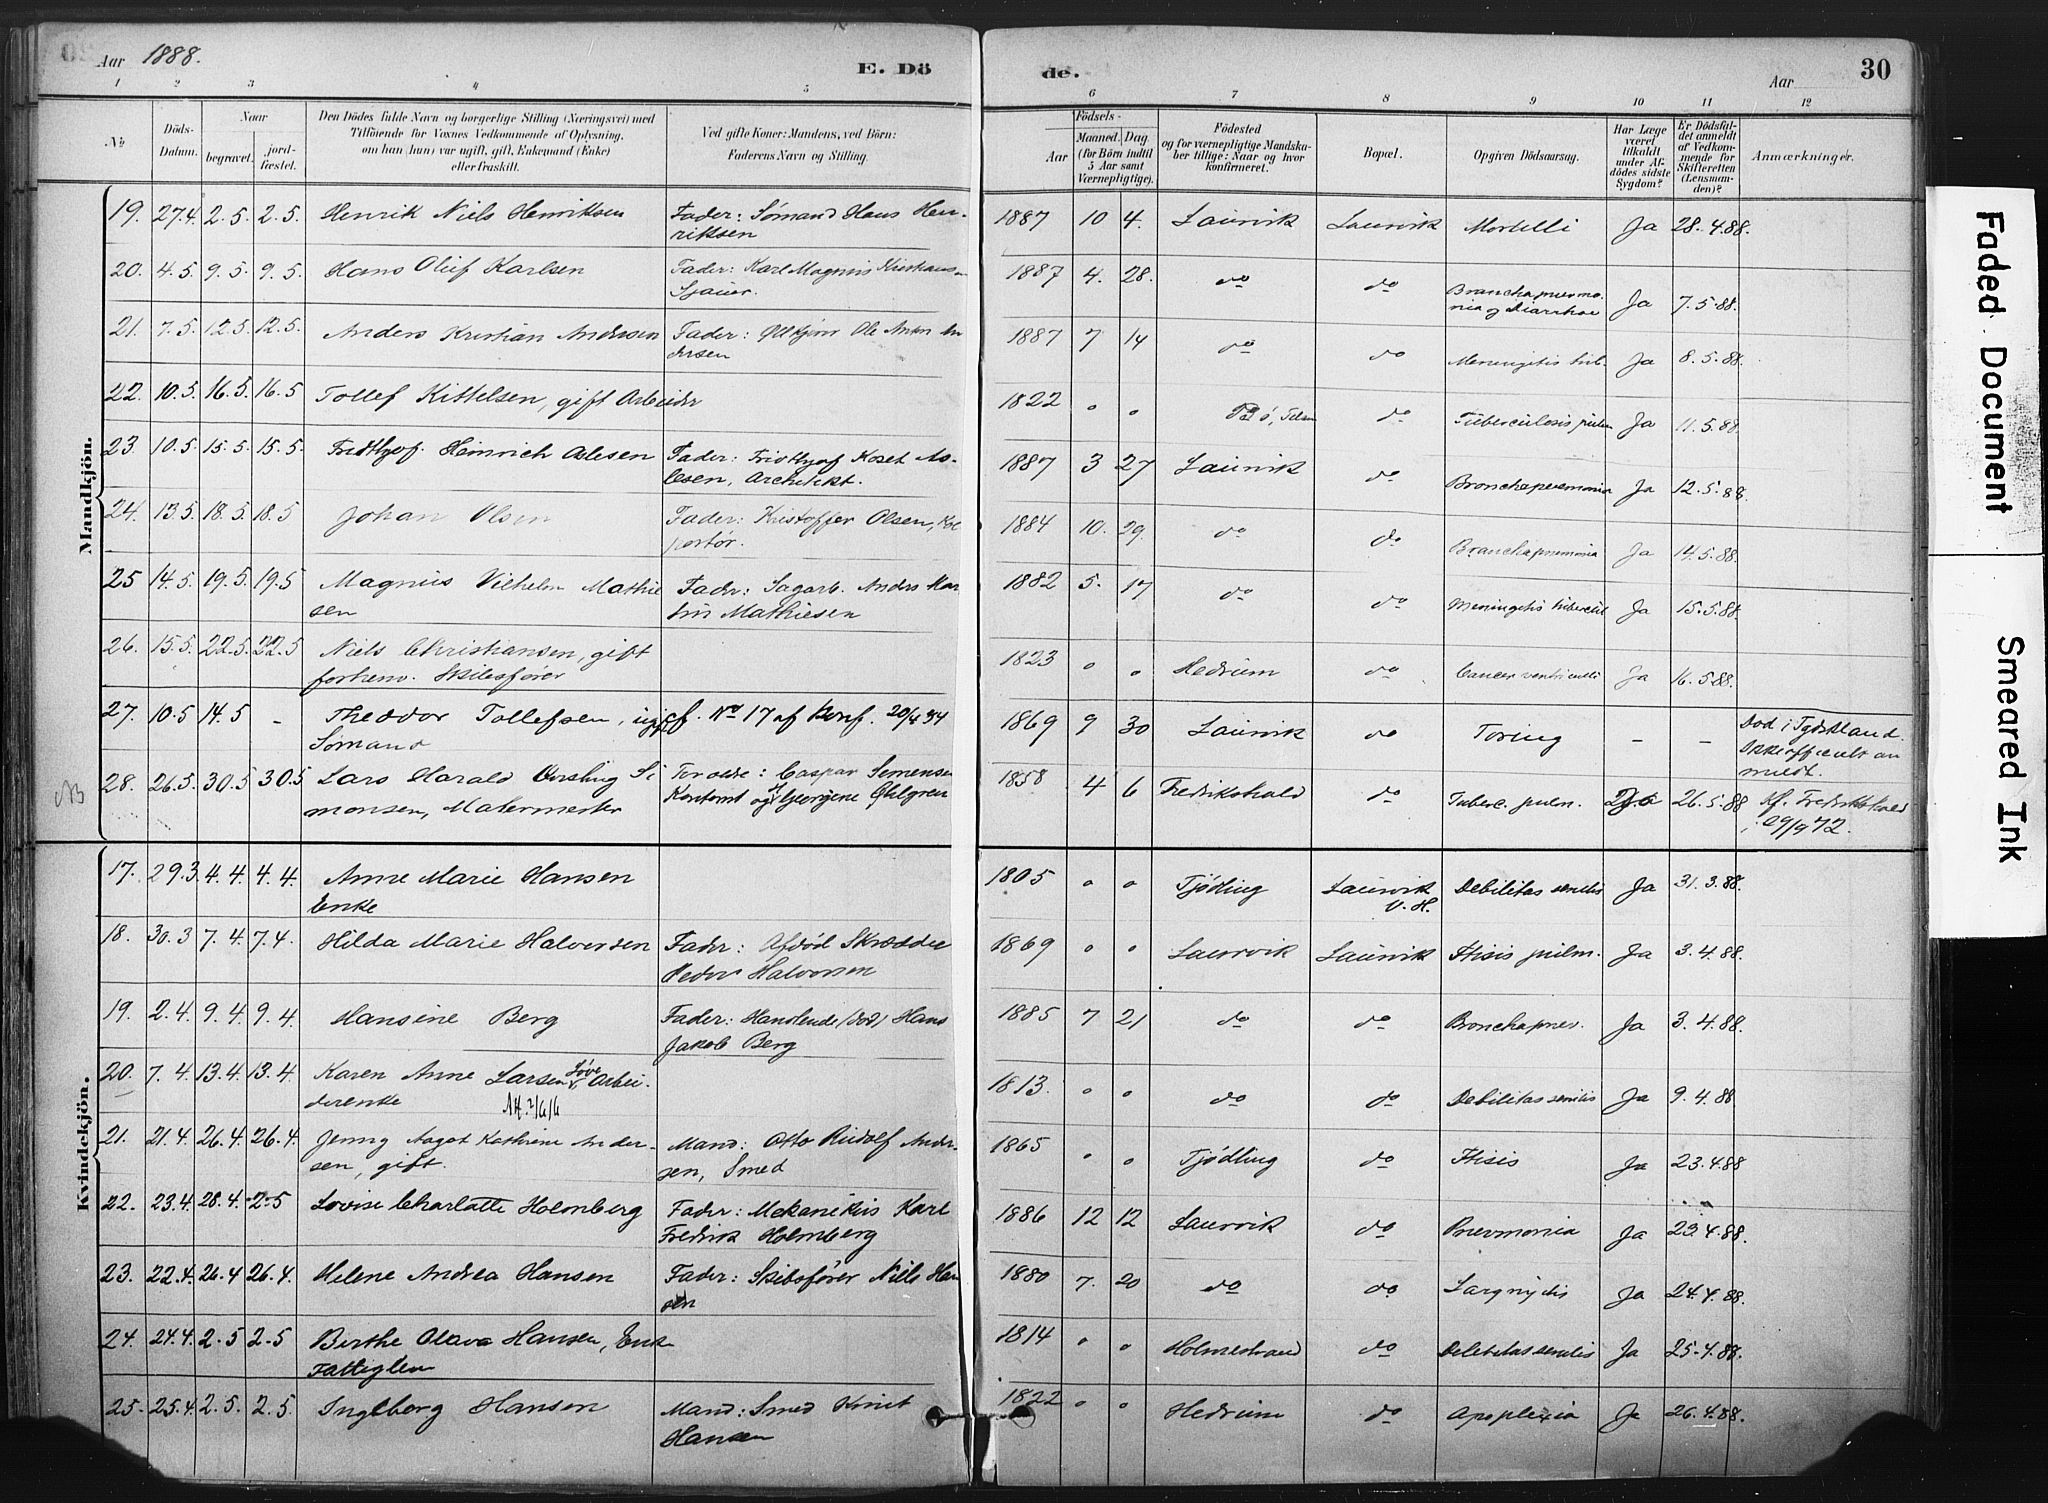 Aar 1888.
E. Dö
de.
Aar
30
1 2 3 4 5
6 7 8 9 10 11 12
No
Döds-Datum.
Naar
begravet.
jord-fæstet.
Den Dödes fulde Navn og borgerlige Stilling (Næringsvei) med
Tilföiende for Voxnes Vedkommende af Oplysning,
om han (hun) var ugift, gift, Enkemand (Enke)
eller fraskilt.
Ved gifte Koner: Mandens, ved Börn:
Faderens Navn og Stilling.
Födsels-
Aar
Maaned. Dag
(for Börn indtil
5 Aar samt
Værnepligtige).
Födested
og for værnepligtige Mandska-
ber tillige: Naar og hvor
konfirmeret.
Bopæl.
Opgiven Dödsaarsag.
Har Læge
været
tilkaldt
under Af-
dödes sidste
Sygdom?
Er Dödsfal-
det anmeldt
af Vedkom-
mende for
Skifteretten
(Lensman-
den)?
Anmærkninger.
Mandkjön.
19. 27.4 2.5. 2.5. Henrik Niels Henriksen Fader: Sømand Hans Hen-
riksen 1887 10 4. Laurvik Laurvik Morbilli Ja 28.4.88.
20. 4.5. 9.5. 9.5. Hans Oluf Karlsen Fader: Karl Magnus
Sjauer. 1887 4. 28. do do Bronchapnevmo-
nia og Diarrhoe Ja 7.5.88.
21. 7.5. 12.5. 12.5. Anders Kristian Andersen Fader: Ole Anton An
dersen 1887 7 14 do do Meningitis tub. Ja 8.5.88.
22. 10.5. 16.5 16.5 Tollef Kittelsen, gift Arbeider 1822 " " do Tuberculosis pulm Ja 11.5.88.
23 10.5. 15.5. 15.5. Fridthjof Heinrich Aslesen Fader: Fridthjof As-
lesen, Architekt. 1887 3 27 Laurvik do Bronchapnevmonia Ja 12.5.88.
24. 13.5 18.5. 18.5 Johan Olsen Fader: Kristoffer Olsen, Kol
portør. 1884 10. 29. do do Bronchapnevmonia Ja 14.5.88.
25 14.5. 19.5. 19.5 Magnus Vilhelm Mathie
sen Fader: Sagarb. Anders Mar
tin Mathiesen 1882 5. 17 do do Meningitis tubercul Ja 15.5.88.
26. 15.5. 22.5. 22.5 Niels Christiansen, gift
forhenv. Skibsfører 1823 " " Hedrum do Cancer ventriculi Ja 16.5.88.
27. 10.5 14.5 - Theodor Tollefsen, ugift
Sømand cf. No 17 af Konf. 20/4 84 1869 9 30 Laurvik do - - Død i Tydskland.
Ikke officielt an
meldt.
NB
28. 26.5. 30.5 30.5 Lars Harald Si
monsen, Malermester Forældre: Caspar Simensen
Kontorist og Øhlgren 1858 4 6 Fredrikshald do Tuberc. pulm. Ja 26.5.88 Kf. Fredrikshald
29/9 72.
Kvindekjön.
17. 29.3. 4.4. 4.4. Anne Marie Hansen
Enke 1805 " " Tjødling Laurvik
V. H. Debilitas senilis Ja 31.3.88.
18. 30.3 7.4. 7.4. Hilda Marie Halvorsen Fader: Afdød Skrædder
Peder Halvorsen 1869 " " Laurvik Laurvik Ftisis pulm. Ja 3.4.88.
19. 2.4. 9.4. 9.4. Hansine Berg Fader: Handlende (død) Hans
Jakob Berg 1885 7 21 do do Bronchapnev. Ja 3.4.88.
20. 7.4. 13.4. 13.4. Karen Anne Larsen Arbei-
derenke 1813. " " do do Debilitas senilis Ja 9.4.88
21. 21.4. 26.4. 26.4. Jenny Aagot Kathrine Ander-
sen, gift. Mand: Otto Rudolf Ander
sen, Smed 1865 " " Tjødling do Ftisis Ja 23.4.88
22. 23.4. 28.4. 2.5 Lovise Charlotte Holmberg Fader: Mekanikus Karl
Fredrik Holmberg 1886 12 12 Laurvik do Pnevmonia Ja 23.4.88.
23. 22.4. 26.4 26.4. Helene Andrea Hansen Fader: Skibsfører Niels Han
sen 1880 7. 20 do do Ja 24.4.88.
24. 24.4. 2.5 2.5 Berthe Olava Hansen, Enke
Fattiglem 1814 " " Holmestrand do Debilitas senilis Ja 25.4.88.
25. 25.4. 2.5. 2.5. Ingeborg Hansen Mand: Smed Knut
Hansen 1822 " " Hedrum do Apoplexia Ja 26.4.88.
Faded Document
Smeared Ink